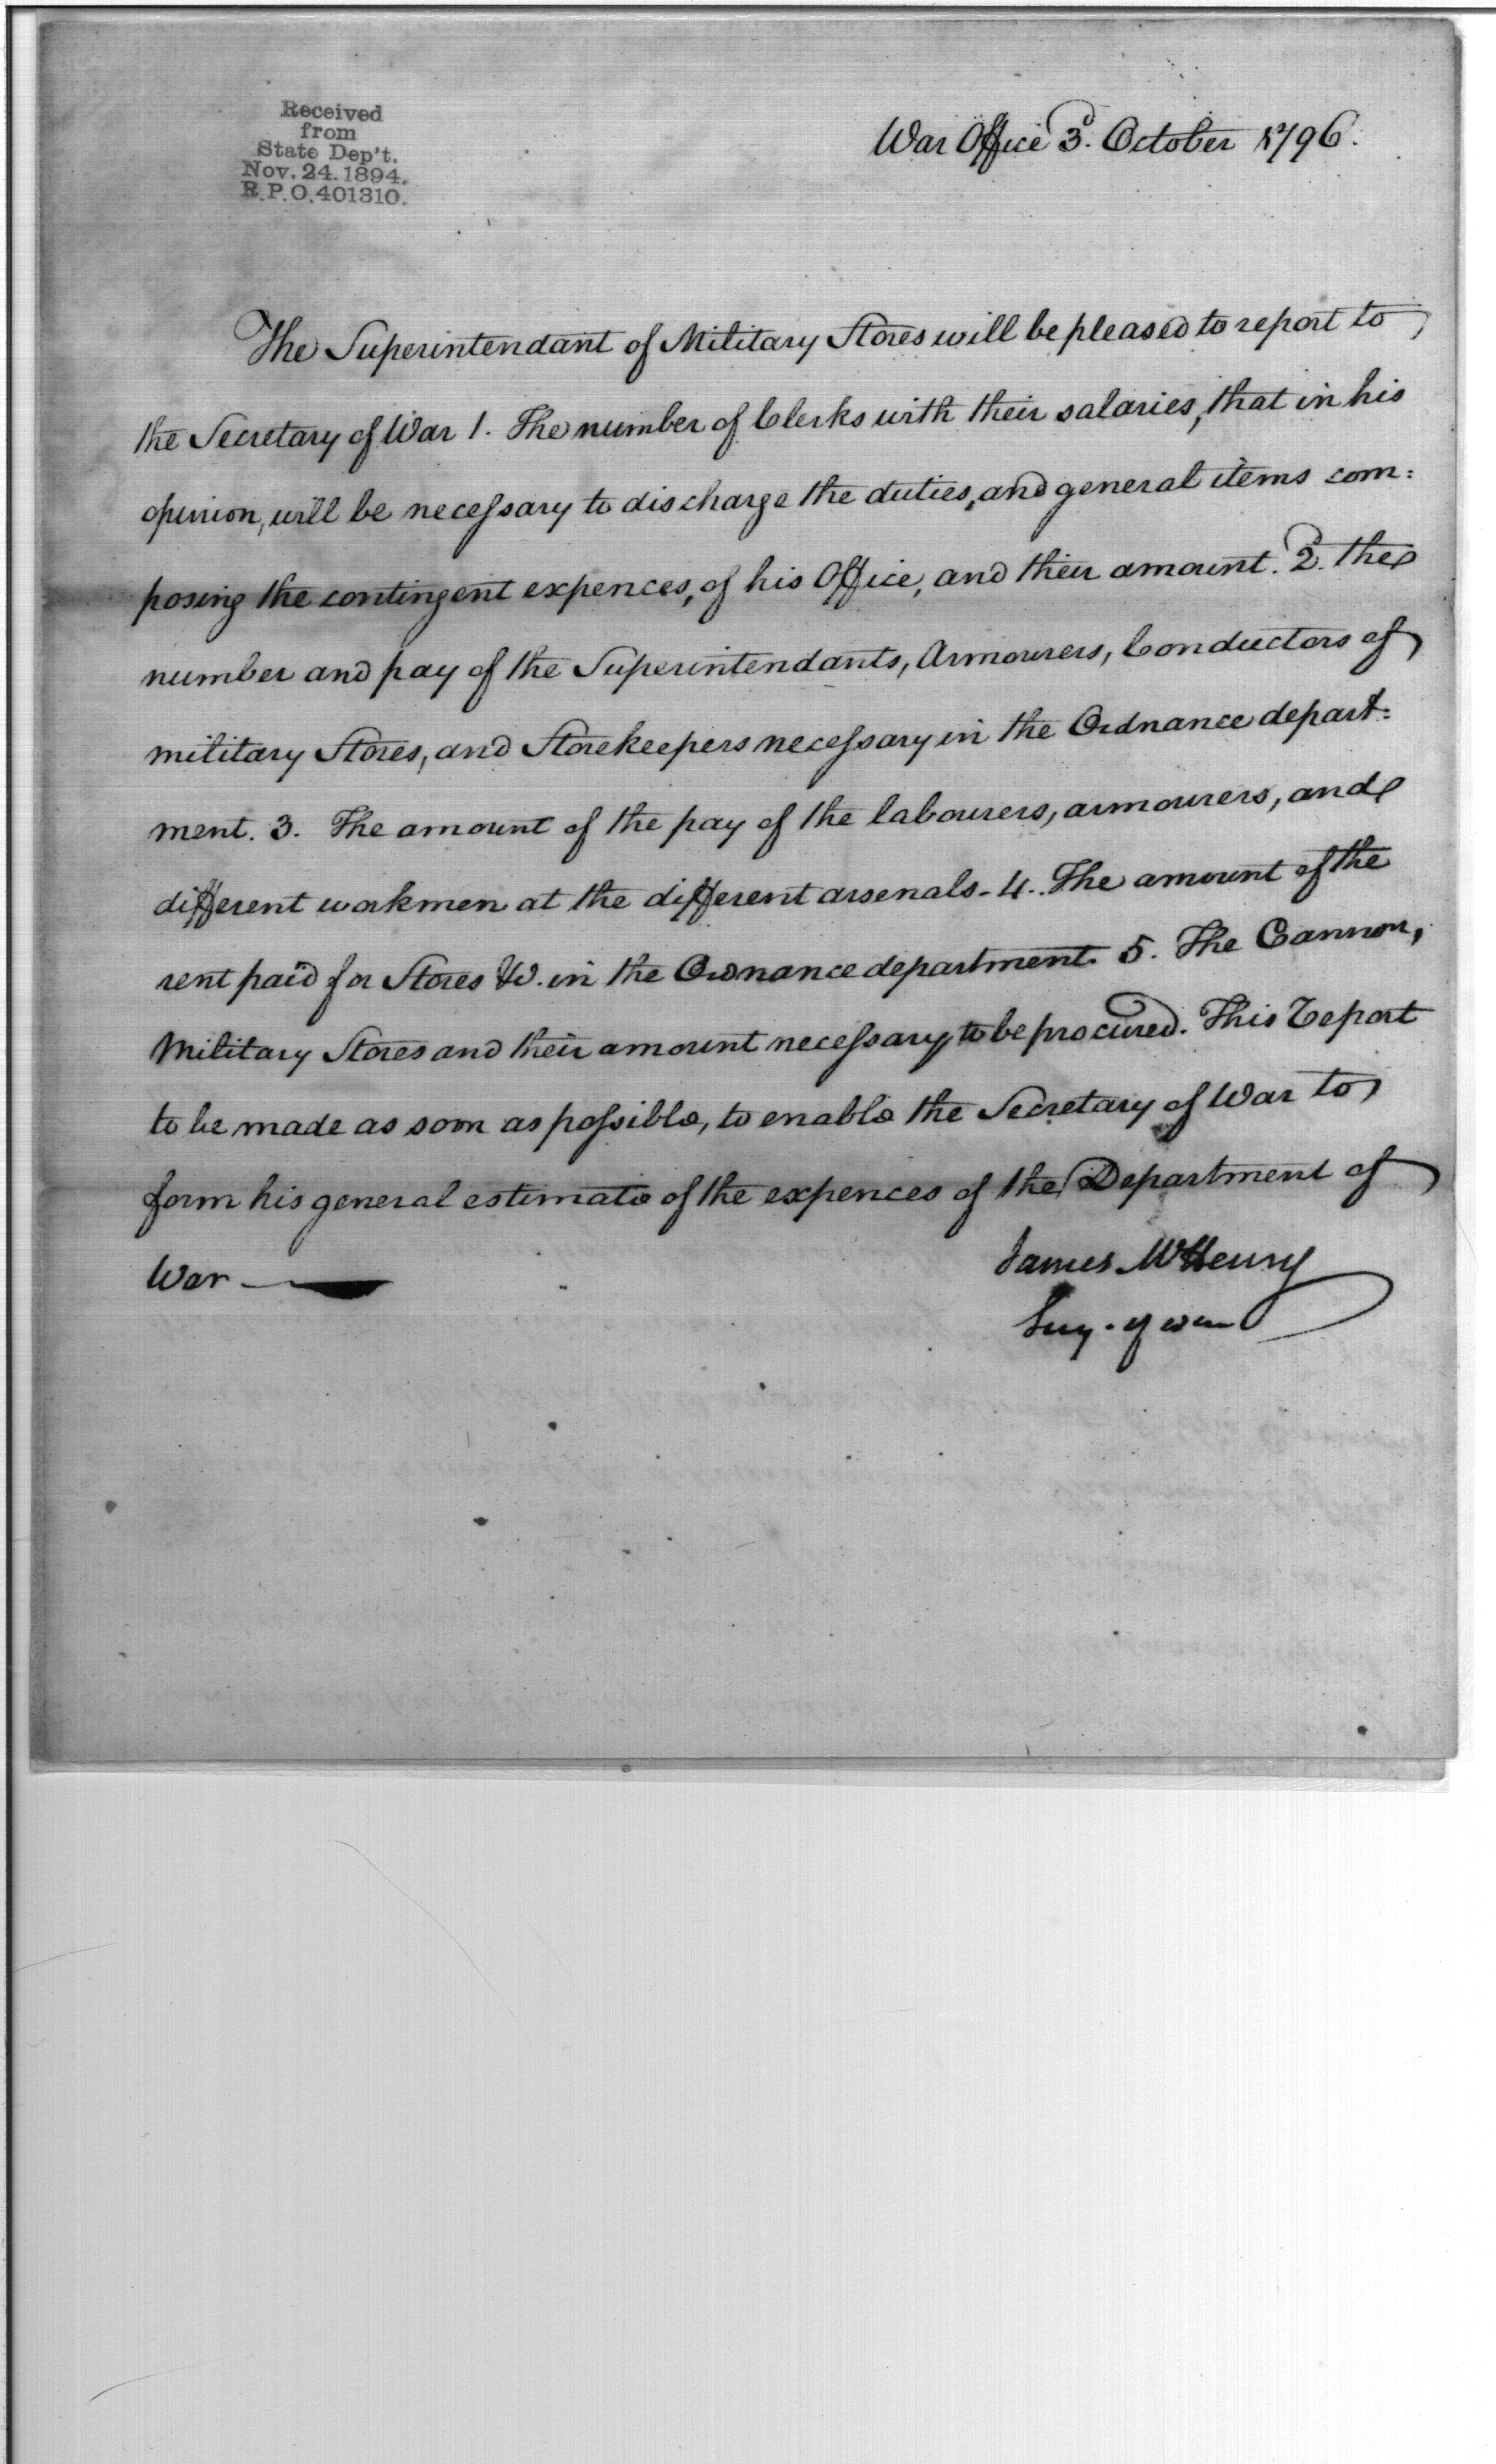 Received
from
State Dep't.
Nov. 24. 1894.
R.P.O. 401310.
War Office 3d. October 1796.
The Superintendant of Military Stores will be pleased to report to
the Secretary of War 1. The number of Clerks with their salaries, that in his
opinion, will be necessary to discharge the duties, and general items com:
posing the contingent expences, of his Office, and their amount. 2d. the
number and pay of the Superintendants, Armourers, Conductors of
military Stores, and Storekeepers necessary in the Ordnance depart:
ment. 3. The amount of the pay of the labourers, armourers, and
different workmen at the different arsenals - 4. The amount of the
rent paid for Stores &c. in the Ordnance department. 5. The Cannon,
Military Stores and their amount necessary to be procured. This Report
to be made as soon as possible, to enable the Secretary of War to
form his general estimate of the expences of the Department of
War —
James McHenry
Secy. of war